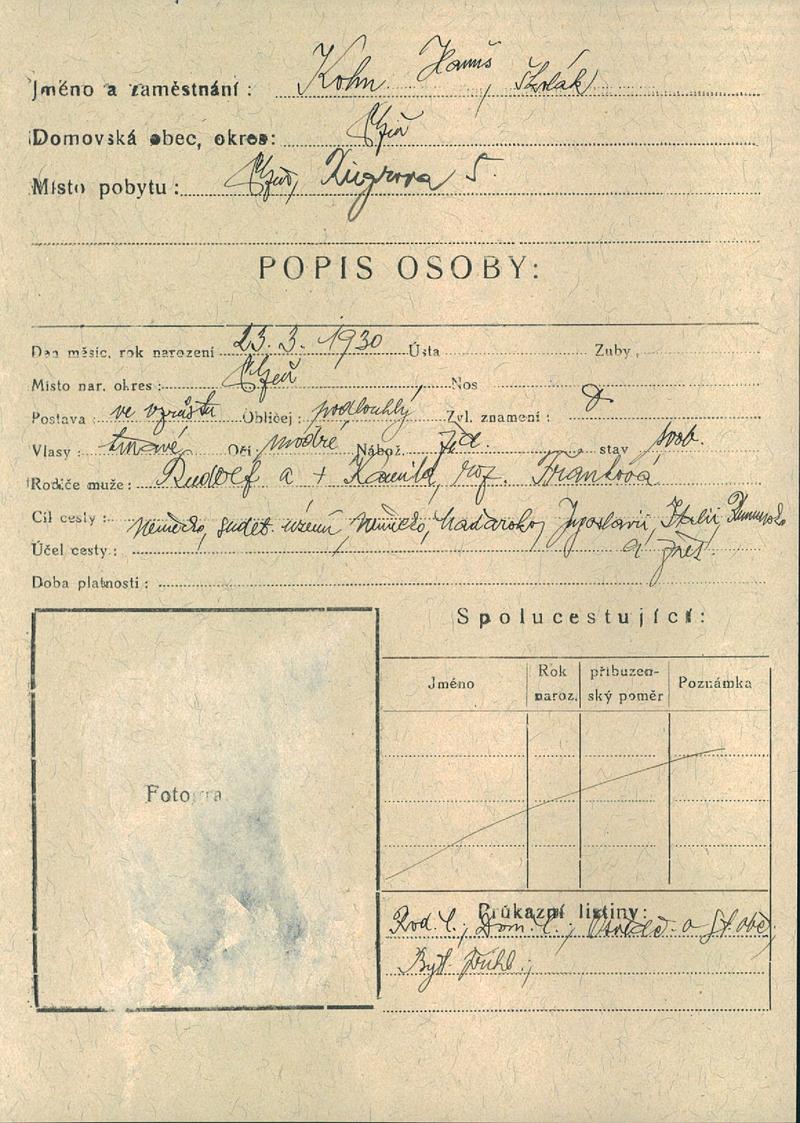 Jméno a zaměstnání : Kohn Hanuš, školák
Domovská obec, okres: Plzeň
Místo pobytu : Plzeň, Riegrova 5.
POPIS OSOBY:
Den měsíc, rok narození 23. 3. 1930 Ústa Zuby
Místo nar. okres : Plzeň Nos
Postava : ve vzrůstu Obličej : podlouhlý Zvl. znamení :
Vlasy : tmavé Oči modré Nábož. žid. stav svob.
Rodiče muže: Rudolf a + Kamila, roz. Fräntlová
Cíl cesty : Německo, sudet. území, Německo, Maďarsko, Jugoslavii, Italii, Rumunsko
Účel cesty : a zpět.
Doba platnosti :
Spolucestující:
Jméno Rok naroz. příbuzenský poměr Poznámka
Fotogra
Průkazní listiny:
Rod. l., Dom. l., Osvědč. o st. obč.
Byt. přihl.,